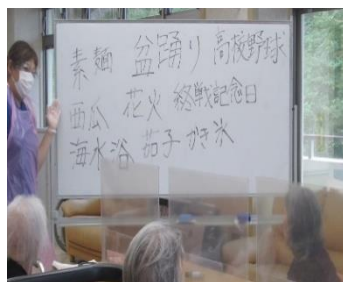 素麺 盆踊り 高校野球
西瓜 花火 終戦記念日
海水浴 茄子 かき氷